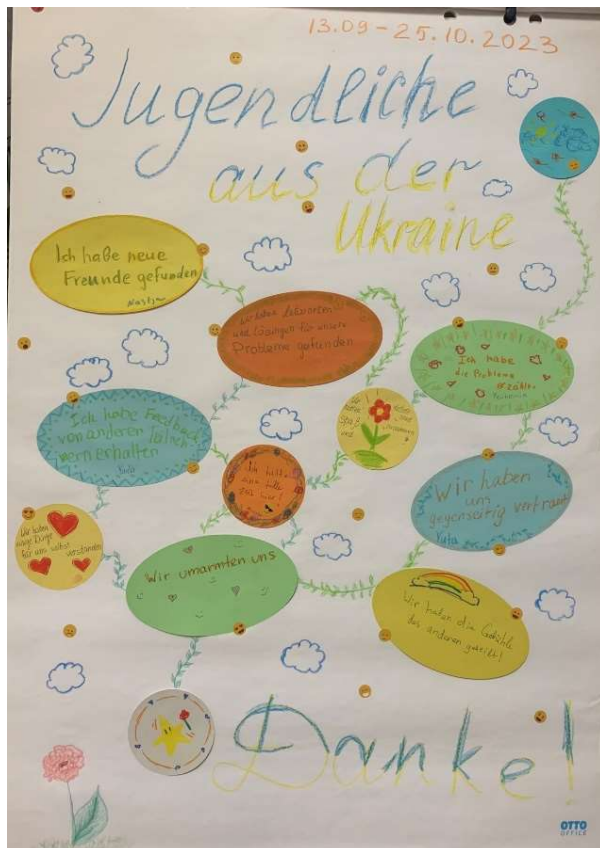 13.09 - 25.10.2023
Jugendliche
aus der
Ukraine
Ich habe neue
Freunde gefunden
Wir haben Antworten
und Lösungen für unsere
Probleme gefunden
Ich habe
die Probleme
erzählt
Ich habe Feedback
von anderen
vern erhalten
Yuta
Ich hatte
eine tolle
Zeit hier!
Wir haben
uns
gegenseitig vertraut
Yuta
Wir haben
einige Dinge
für uns selbst
verstanden
Wir umarmten uns
Wir haben die Gefühle
des anderen geteilt!
Danke!
OTTO
OFFICE